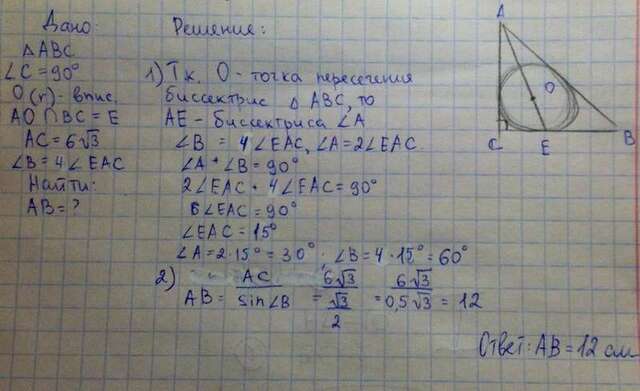 Дано:
△ABC
∠C = 90°
O(r) - впис.
AO ∩ BC = E
AC = 6√3
∠B = 4∠EAC
Найти:
AB = ?
Решение:
1) Т.к. O - точка пересечения
биссектрис △ABC, то
AE - биссектриса ∠A
∠B = 4∠EAC, ∠A = 2∠EAC.
∠A + ∠B = 90°
2∠EAC + 4∠EAC = 90°
6∠EAC = 90°
∠EAC = 15°
∠A = 2·15° = 30° ∠B = 4·15° = 60°
2) AB = AC/sin∠B = 6√3/(√3/2) = 6√3/0,5√3 = 12
Ответ: AB = 12 см
A
O
C
E
B